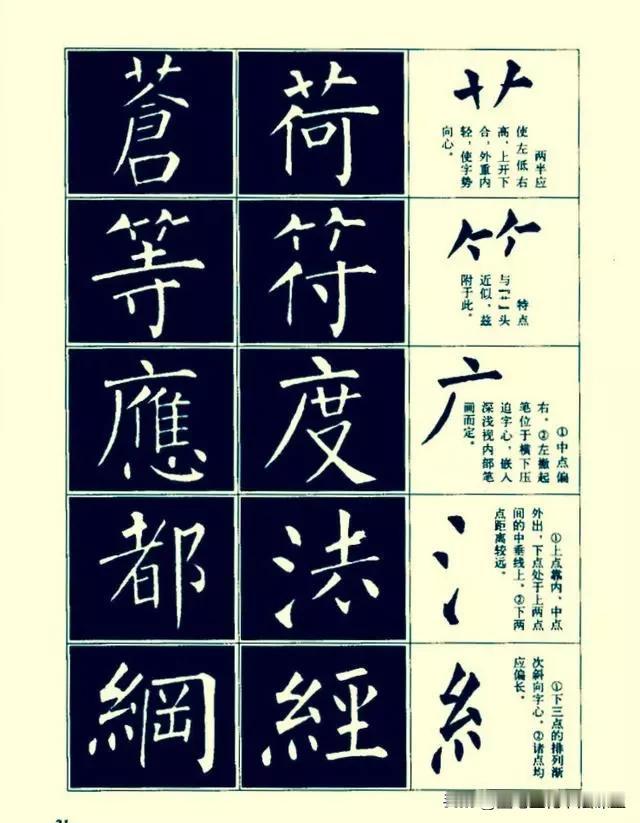 艹
两半应
使左低右
高，上开下
合，外重内
轻，使字势
向心。
荷
蒼
⺮
特点
与“艹”头
近似，兹
附于此。
符
等
广
①中点偏
右。②左撇起
笔位于横下压
迫字心，嵌入
深浅视内部笔
画而定。
度
應
氵
①上点靠内，中点
外出，下点处于上两点
间的中垂线上。②下两
点距离较远。
法
都
糹
①下三点的排列渐
次斜向字心。②诸点均
应偏长。
經
綱